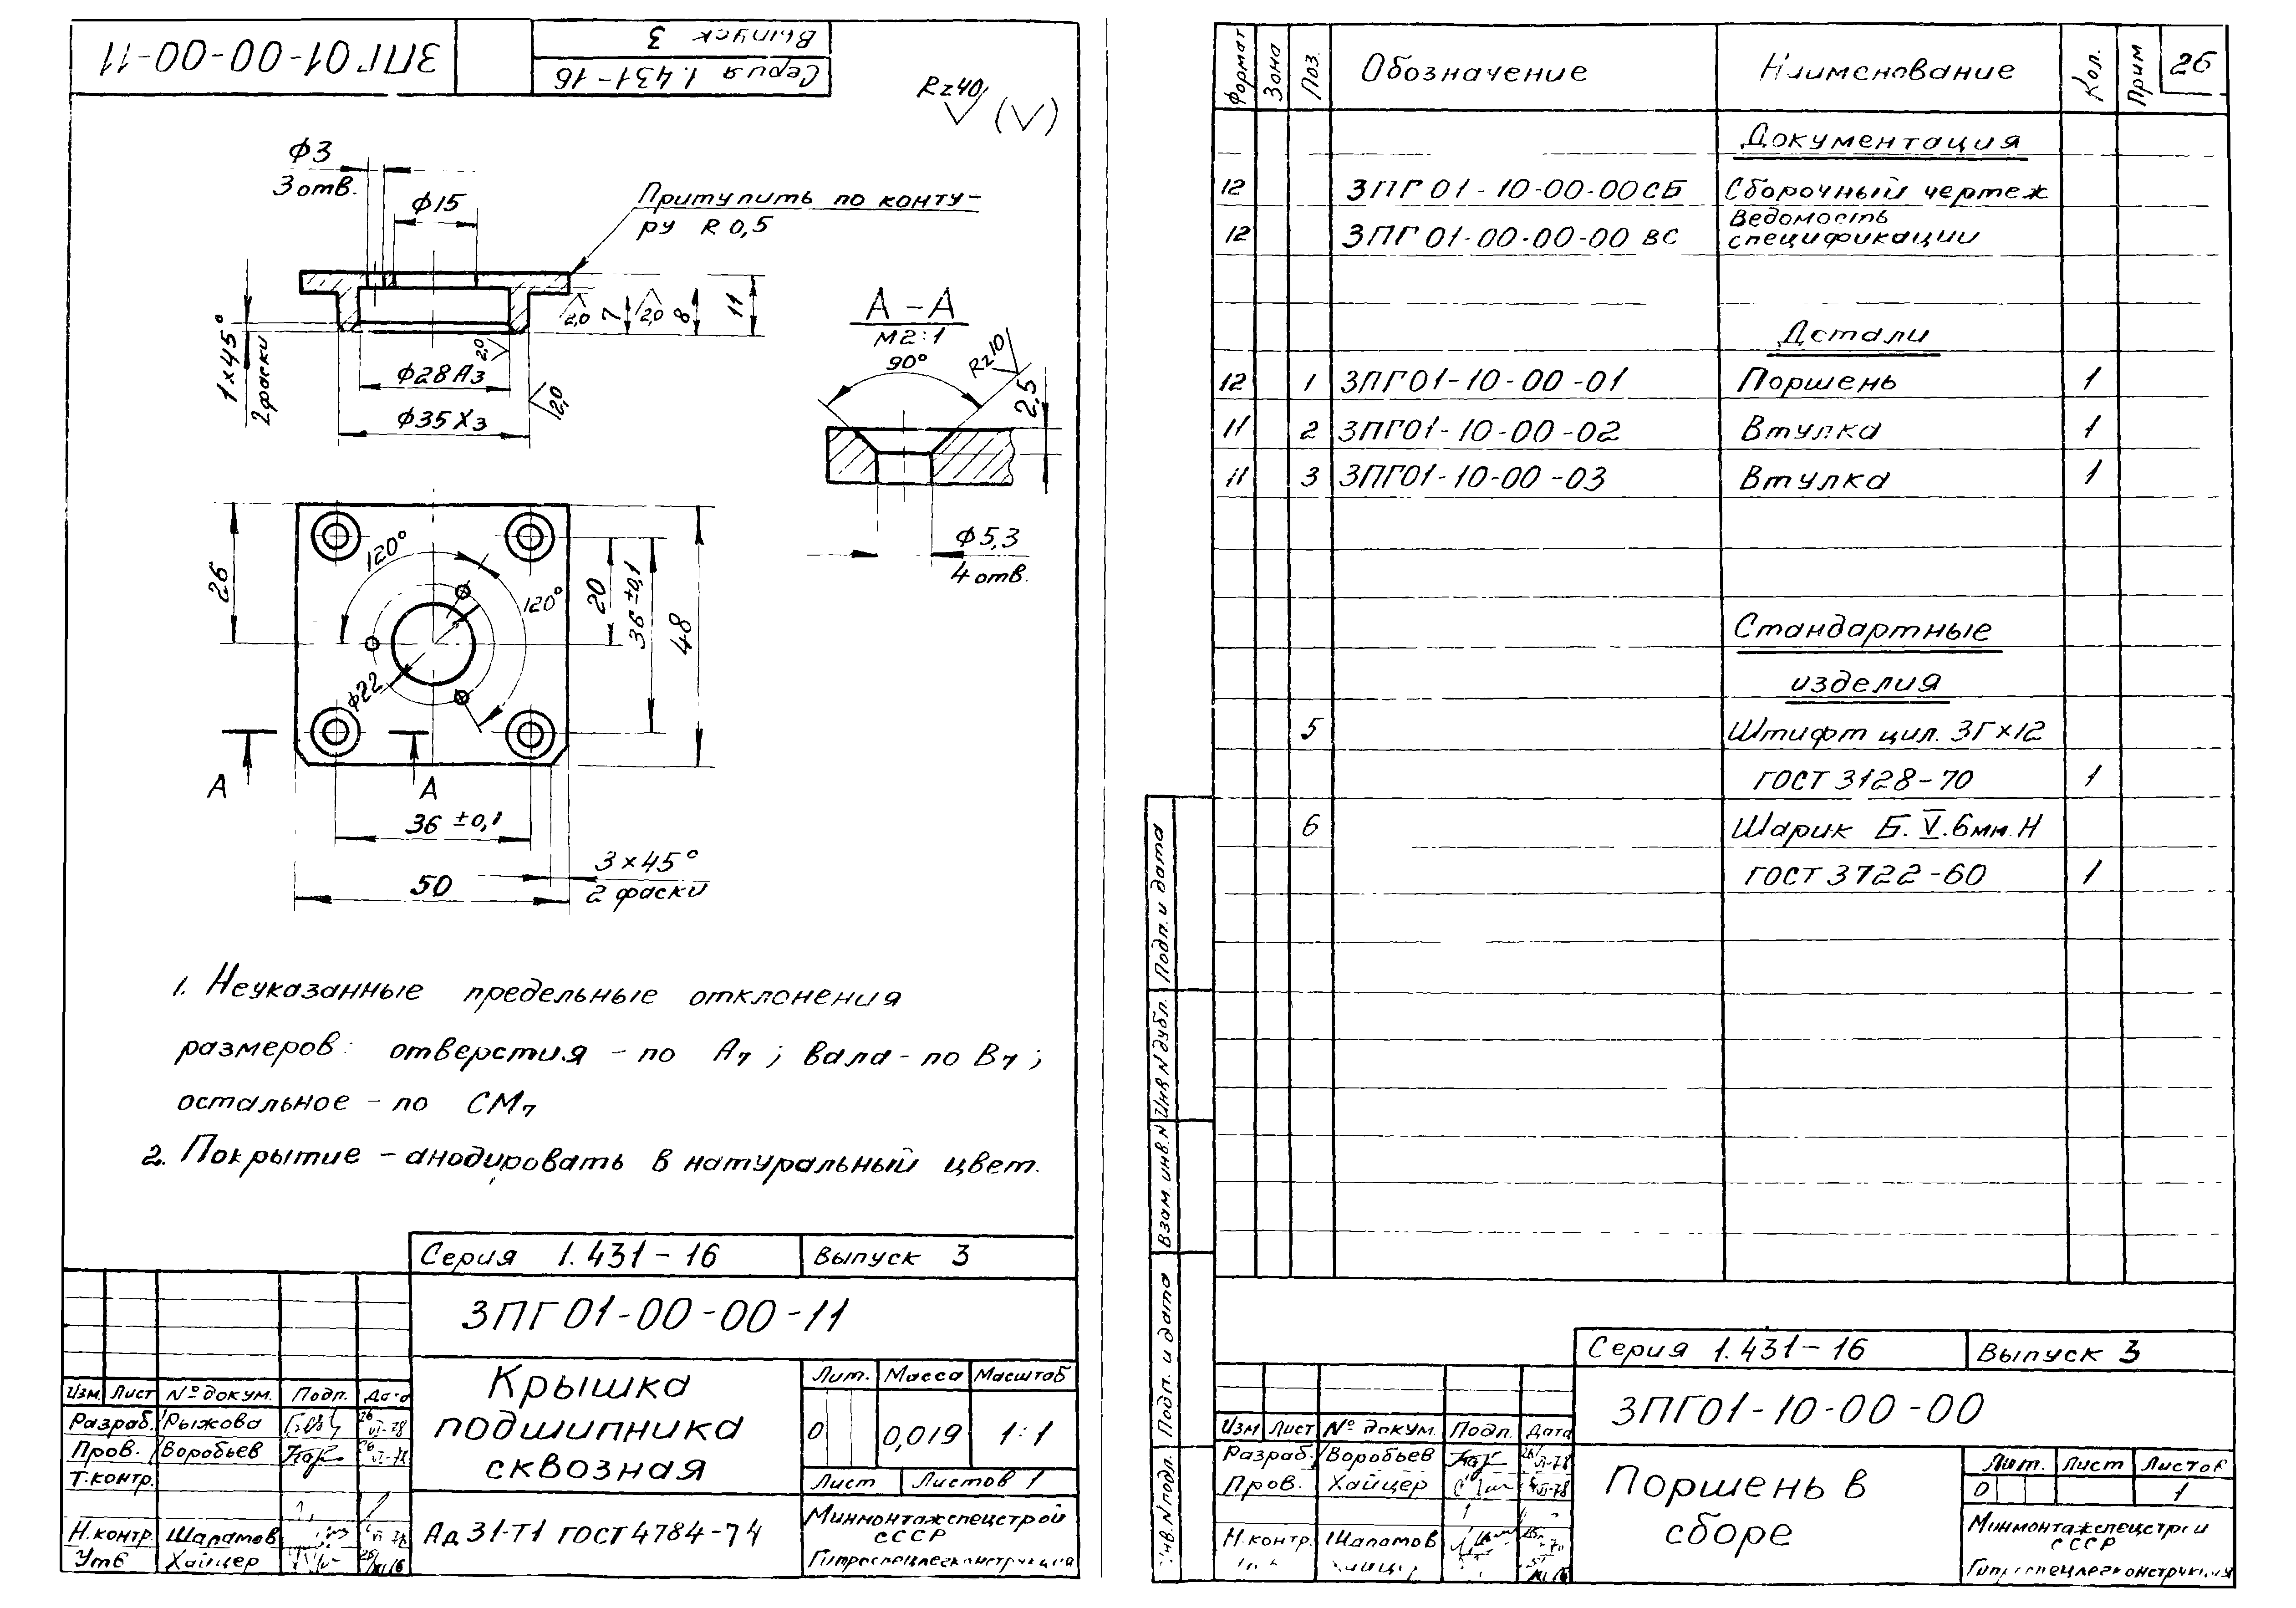 ЗПГ01-00-00-11
Серия 1.431-16
Выпуск 3
Rz40 (√)
Ф3
3 отв.
Ф15
Притупить по конту-
ру R 0,5
1×45°
2 фаски
2,0
7
2,0
8
11
2,0
Ф28А3
2,0
Ф35Х3
А-А
М2:1
90°
Rz10
2,5
Ф5,3
4 отв.
26
120°
120°
Ф22
20
36±0,1
48
А
А
36±0,1
3×45°
2 фаски
50
1. Неуказанные предельные отклонения
размеров: отверстия - по А7; вала - по В7;
остальное - по СМ7
2. Покрытие - анодировать в натуральный цвет.
Серия 1.431-16 Выпуск 3
ЗПГ01-00-00-11
Крышка
подшипника
сквозная
Лит. Масса Масштаб
0 0,019 1:1
Лист Листов 1
Ад31-Т1 ГОСТ4784-74
Минмонтажспецстрой
СССР
Гипроспецлегконструкция
Изм. Лист № докум. Подп. Дата
Разраб. Рыжова
Пров. Воробьев
Т.контр.
Н.контр. Шапатов
Утв Хайцер
Формат Зона Поз. Обозначение Наименование Кол. Прим 26
Документация
12 ЗПГ01-10-00-00СБ Сборочный чертеж
12 ЗПГ01-00-00-00 ВС Ведомость
спецификации
Детали
12 1 ЗПГ01-10-00-01 Поршень 1
11 2 ЗПГ01-10-00-02 Втулка 1
11 3 ЗПГ01-10-00-03 Втулка 1
Стандартные
изделия
5 Штифт цил. 3Г×12
ГОСТ 3128-70 1
6 Шарик Б. V. 6мм. Н
ГОСТ 3722-60 1
Подп. и дата
Инв N дубл.
Взам. инв. N
Подп. и дата
Инв. N подл.
Серия 1.431-16 Выпуск 3
ЗПГ01-10-00-00
Поршень в
сборе
Лит. Лист Листов
0 1
Минмонтажспецстрой
СССР
Гипроспецлегконструкция
Изм Лист № докум. Подп. Дата
Разраб. Воробьев
Пров. Хайцер
Н.контр. Шапатов